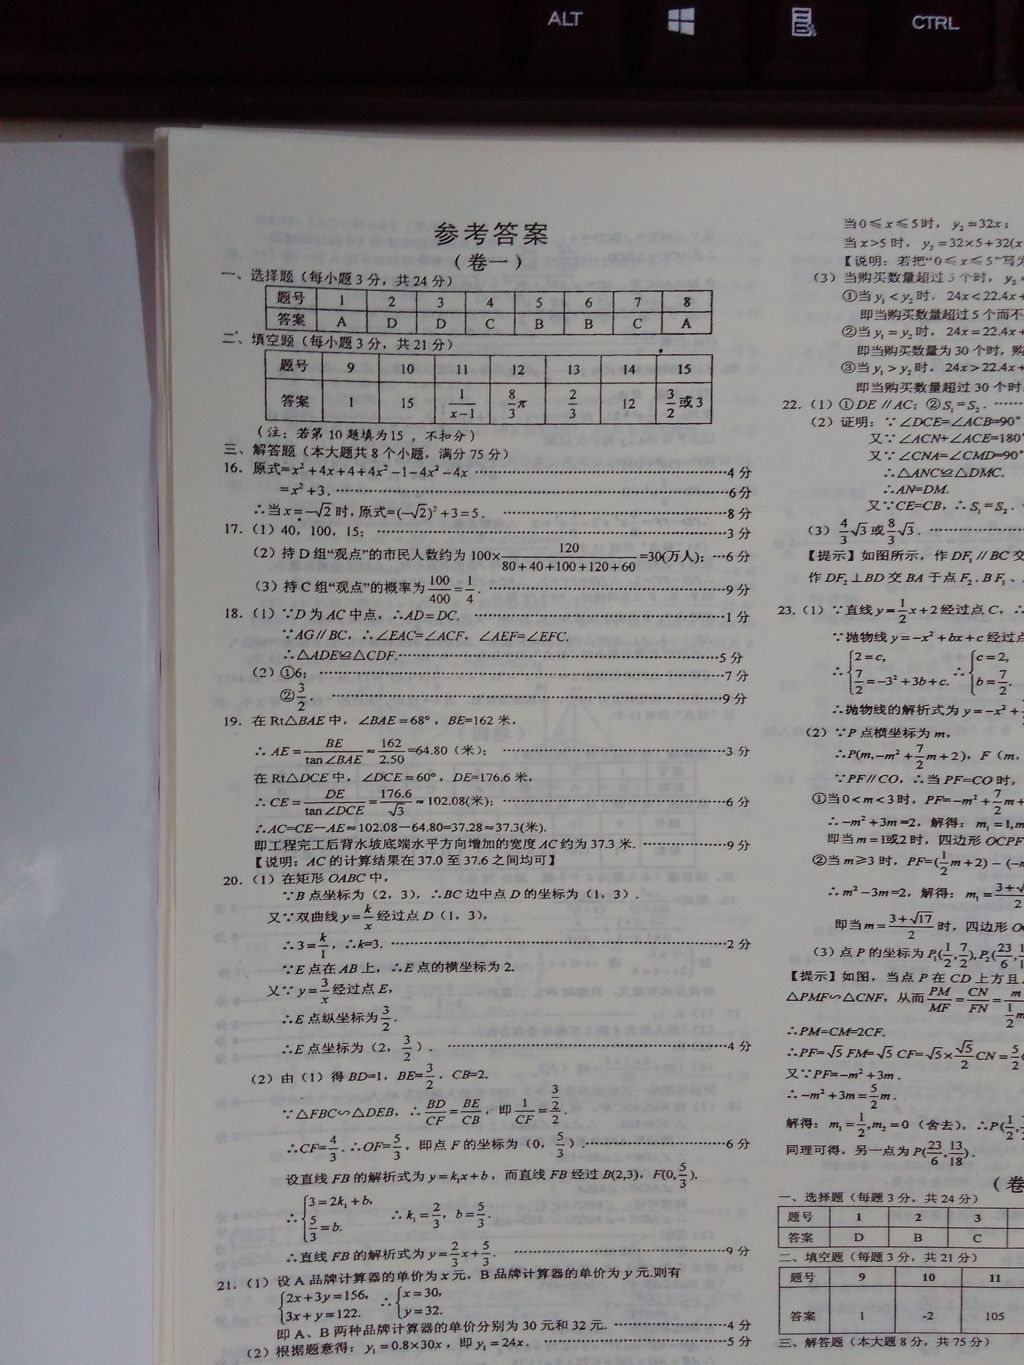 ALT
CTRL
参考答案
（卷一）
一、选择题（每小题3分，共24分）
题号 1 2 3 4 5 6 7 8
答案 A D D C B B C A
二、填空题（每小题3分，共21分）
题号 9 10 11 12 13 14 15
答案 1 15 1/(x-1) 8/3π 2/3 12 3/2或3
（注：若第10题填为15，不扣分）
三、解答题（本大题共8个小题，满分75分）
16．原式=x²+4x+4+4x²-1-4x²-4x ……4分
=x²+3．……6分
∴当x=-√2时，原式=(-√2)²+3=5．……8分
17．（1）40，100，15；……3分
（2）持D组“观点”的市民人数约为100×120/(80+40+100+120+60)=30(万人)；…6分
（3）持C组“观点”的概率为100/400=1/4．……9分
18．（1）∵D为AC中点，∴AD=DC．……1分
∵AG∥BC，∴∠EAC=∠ACF，∠AEF=∠EFC.
∴△ADE≌△CDF.……5分
（2）①6；……7分
②3/2．……9分
19．在Rt△BAE中，∠BAE=68°，BE=162米，
∴AE=BE/tan∠BAE≈162/2.50=64.80（米）；……3分
在Rt△DCE中，∠DCE=60°，DE=176.6米，
∴CE=DE/tan∠DCE=176.6/√3≈102.08(米)；……6分
∴AC=CE－AE≈102.08－64.80=37.28≈37.3(米).
即工程完工后背水坡底端水平方向增加的宽度AC约为37.3米．……9分
【说明：AC的计算结果在37.0至37.6之间均可】
20．（1）在矩形OABC中，
∵B点坐标为（2，3），∴BC边中点D的坐标为（1，3）．
又∵双曲线y=k/x经过点D（1，3），
∴3=k/1，∴k=3.……2分
∵E点在AB上，∴E点的横坐标为2.
又∵y=3/x经过点E，
∴E点纵坐标为3/2．
∴E点坐标为（2，3/2）．……4分
（2）由（1）得BD=1，BE=3/2．CB=2.
∵△FBC∽△DEB，∴BD/CF=BE/CB，即1/CF=(3/2)/2．
∴CF=4/3．∴OF=5/3，即点F的坐标为（0，5/3）.……6分
设直线FB的解析式为y=k₁x+b，而直线FB经过B(2,3)，F(0,5/3).
∴{3=2k₁+b, 5/3=b. ∴k₁=2/3，b=5/3．
∴直线FB的解析式为y=2/3x+5/3．……9分
21．（1）设A品牌计算器的单价为x元，B品牌计算器的单价为y元.则有
{2x+3y=156， 3x+y=122. ∴{x=30， y=32.
即A、B两种品牌计算器的单价分别为30元和32元．……4分
（2）根据题意得：y₁=0.8×30x，即y₁=24x．……5分
当0≤x≤5时，y₂=32x；
当x>5时，y₂=32×5+32(x
【说明：若把“0≤x≤5”写为
（3）当购买数量超过5个时，y₂=
①当y₁<y₂时，24x<22.4x+
即当购买数量超过5个而不
②当y₁=y₂时，24x=22.4x+
即当购买数量为30个时，购
③当y₁>y₂时，24x>22.4x+
即当购买数量超过30个时
22．（1）①DE∥AC；②S₁=S₂．……
（2）证明：∵∠DCE=∠ACB=90°
又∵∠ACN+∠ACE=180°
又∵∠CNA=∠CMD=90°
∴△ANC≌△DMC.
∴AN=DM.
又∵CE=CB，∴S₁=S₂．
（3）4/3√3或8/3√3．……
【提示】如图所示，作DF₁∥BC交
作DF₂⊥BD交BA于点F₂．BF₁、
23．（1）∵直线y=1/2x+2经过点C，∴
∵抛物线y=-x²+bx+c经过点
∴{2=c， 7/2=-3²+3b+c. ∴{c=2， b=7/2.
∴抛物线的解析式为y=-x²+
（2）∵P点横坐标为m，
∴P(m,-m²+7/2m+2)，F（m，
∵PF∥CO，∴当PF=CO时，
①当0<m<3时，PF=-m²+7/2m+
∴-m²+3m=2，解得：m₁=1,m
即当m=1或2时，四边形OCPF
②当m≥3时，PF=(1/2m+2)-(-m
∴m²-3m=2，解得：m₁=(3+√
即当m=(3+√17)/2时，四边形O
（3）点P的坐标为P₁(1/2,7/2),P₂(23/6,
【提示】如图，当点P在CD上方且
△PMF∽△CNF，从而PM/MF=CN/FN=m
∴PM=CM=2CF.
∴PF=√5FM=√5CF=√5×√5/2CN=5/2
又∵PF=-m²+3m．
∴-m²+3m=5/2m．
解得：m₁=1/2,m₂=0（舍去），∴P(1/2,
同理可得，另一点为P(23/6,13/18)．
（卷
一、选择题（每题3分，共24分）
题号 1 2 3
答案 D B C
二、填空题（每题3分，共21分）
题号 9 10 11
答案 1 -2 105
三、解答题（本大题8分，共75分）